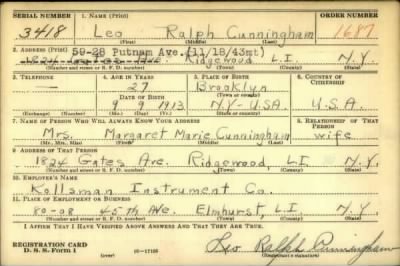 SERIAL NUMBER 1. NAME (Print) ORDER NUMBER
3418 Leo Ralph Cunningham 1687
(First) (Middle) (Last)
2. ADDRESS (Print) 59-28 Putnam Ave. (11/18/43mt)
1824 Gates Ave. Ridgewood L.I. N.Y.
(Number and street or R. F. D. number) (Town) (County) (State)
3. TELEPHONE 4. AGE IN YEARS 5. PLACE OF BIRTH 6. COUNTRY OF CITIZENSHIP
— 27 Brooklyn
DATE OF BIRTH (Town or county)
9 9 1913 N.Y.-U.S.A. U.S.A.
(Exchange) (Number) (Mo.) (Day) (Yr.) (State or country)
7. NAME OF PERSON WHO WILL ALWAYS KNOW YOUR ADDRESS 8. RELATIONSHIP OF THAT PERSON
Mrs. Margaret Marie Cunningham wife
(Mr., Mrs., Miss) (First) (Middle) (Last)
9. ADDRESS OF THAT PERSON
1824 Gates Ave. Ridgewood, L.I. N.Y.
(Number and street or R. F. D. number) (Town) (County) (State)
10. EMPLOYER'S NAME
Kollsman Instrument Co.
11. PLACE OF EMPLOYMENT OR BUSINESS
80-08 45th Ave. Elmhurst, L.I. N.Y.
(Number and street or R. F. D. number) (Town) (County) (State)
I AFFIRM THAT I HAVE VERIFIED ABOVE ANSWERS AND THAT THEY ARE TRUE.
REGISTRATION CARD
D. S. S. Form 1 (over) 16—17105 Leo Ralph Cunningham